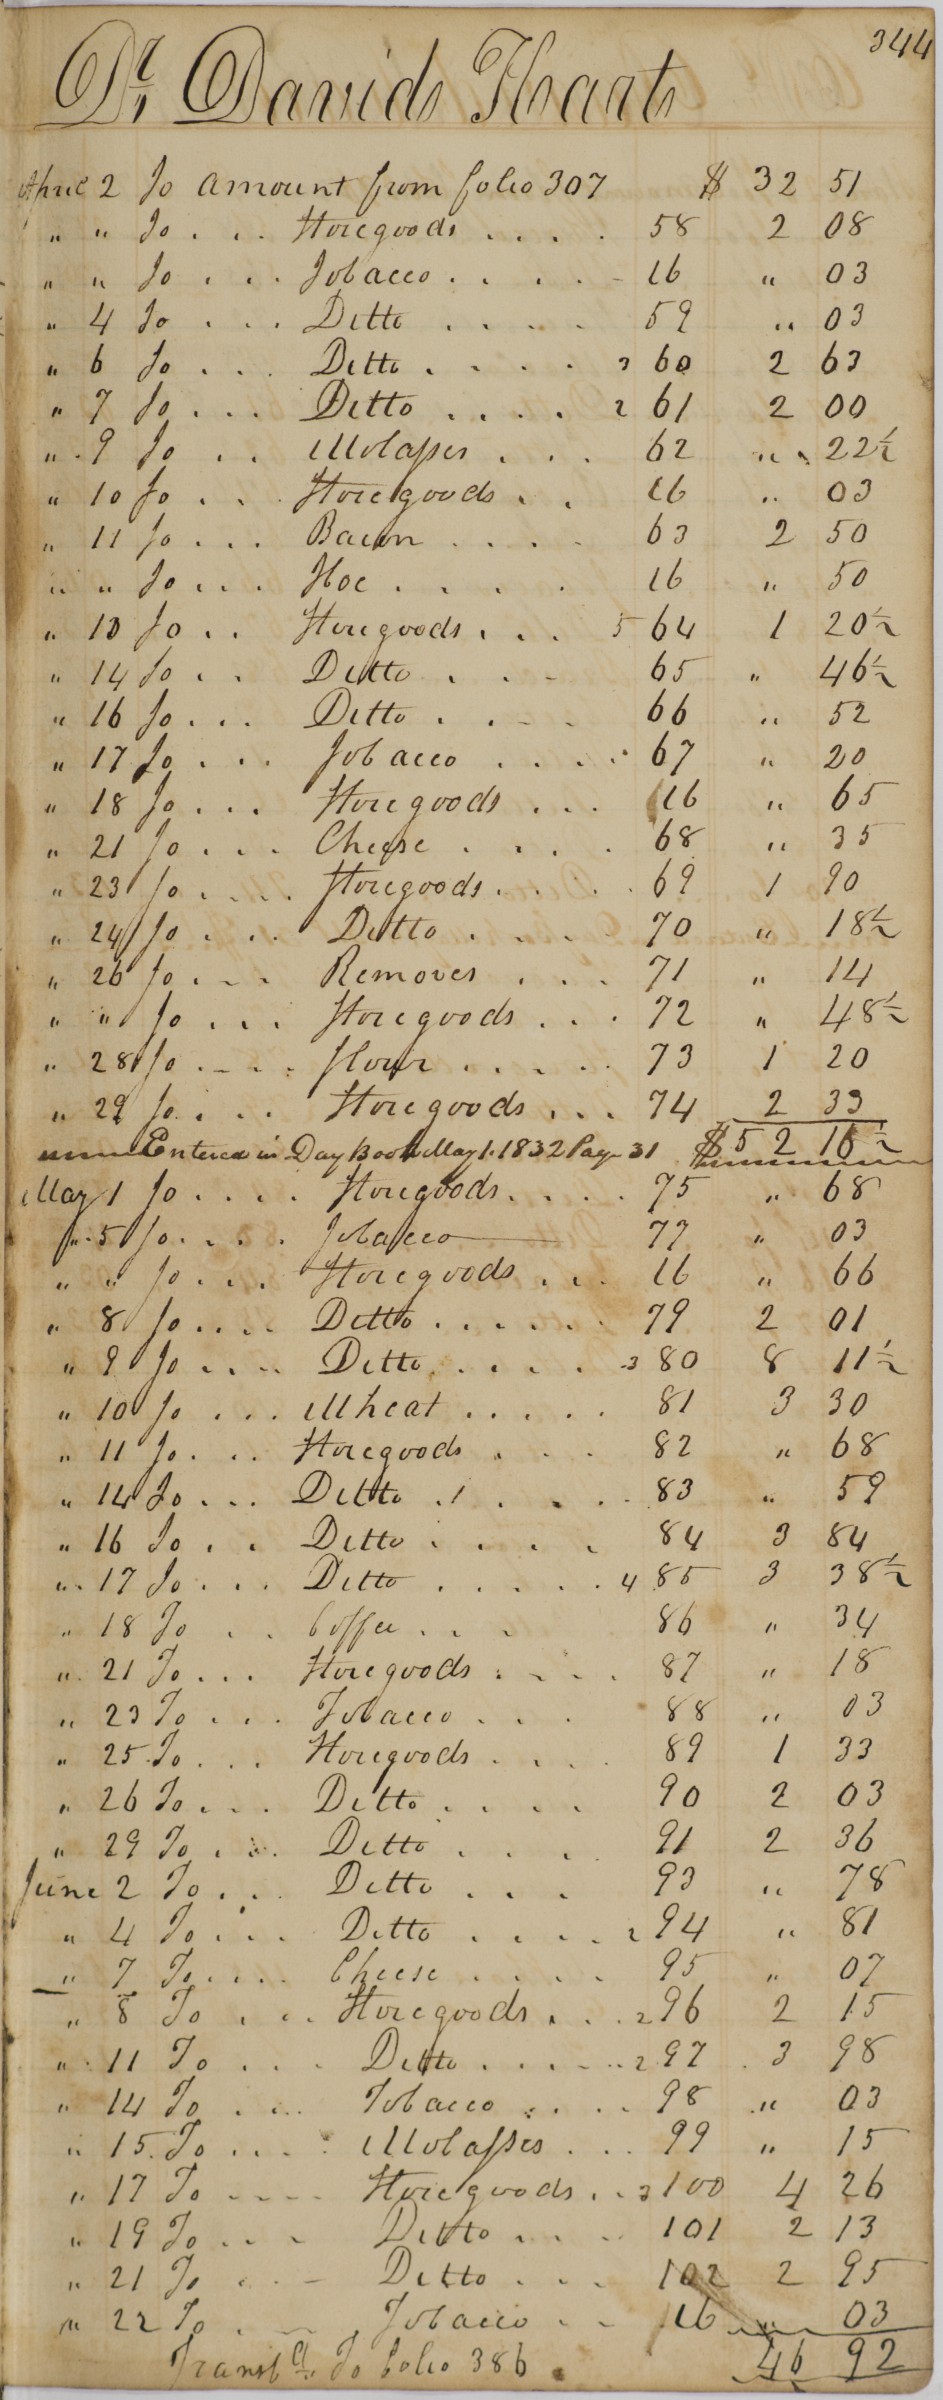 344
Dr, Davids Hart
April 2 To Amount from folio 307 $ 32 51
" " To . . . Storegoods . . . . 58 2 08
" " To . . . Tobacco . . . . . 16 " 03
" 4 To . . . Ditto . . . . 59 " 03
" 6 To . . . Ditto . . . . 3 60 2 63
" 7 To . . . Ditto . . . . 2 61 2 00
" 9 To . . Molasses . . . 62 " 22½
" 10 To . . . Storegoods . . 16 " 03
" 11 To . . . Bacon . . . . 63 2 50
" " To . . . Hoe . . . . . 16 " 50
" 13 To . . Storegoods . . . 5 64 1 20½
" 14 To . . Ditto . . . 65 " 46½
" 16 To . . . Ditto . . . . 66 " 52
" 17 To . . . Tobacco . . . . 67 " 20
" 18 To . . . Storegoods . . . 16 " 65
" 21 To . . . Cheese . . . . 68 " 35
" 23 To . . . . Storegoods . . . . 69 1 90
" 24 To . . . Ditto . . . . 70 " 18½
" 26 To . . . Removes . . . 71 " 14
" " To . . . Storegoods . . . 72 " 48½
" 28 To . . . . flour . . . . . 73 1 20
" 29 To . . . . Storegoods . . . 74 2 33
Entered in Day Book May 1. 1832 Page 31 $ 52 16½
May 1 To . . . . Storegoods . . . . 75 " 68
" 5 To . . . . Tobacco 77 " 03
" " To . . . Storegoods . . . 16 " 66
" 8 To . . . . Ditto . . . . . . 79 2 01
" 9 To . . . . Ditto . . . . . 3 80 8 11½
" 10 To . . . Wheat . . . . . 81 3 30
" 11 To . . . Storegoods . . . 82 " 68
" 14 To . . . Ditto . . . . . 83 " 59
" 16 To . . Ditto . . . . 84 3 84
" 17 To . . . Ditto . . . . . 4 85 3 38½
" 18 To . . Coffee . . . 86 " 34
" 21 To . . . Storegoods . . . . 87 " 18
" 23 To . . . Tobacco . . . 88 " 03
" 25 To . . . Storegoods . . . . 89 1 33
" 26 To . . . Ditto . . . . 90 2 03
" 29 To . . . Ditto . . . . 91 2 36
June 2 To . . . Ditto . . . 93 " 78
" 4 To . . . Ditto . . . . 2 94 " 81
" 7 To . . . . Cheese . . . . 95 " 07
" 8 To . . . Storegoods . . . 2 96 2 15
" 11 To . . . . Ditto . . . . . 2 97 3 98
" 14 To . . . Tobacco . . . . 98 " 03
" 15 To . . . . Molasses . . . 99 " 15
" 17 To . . . . Storegoods . . 3 100 4 26
" 19 To . . . Ditto . . . . 101 2 13
" 21 To . . . Ditto . . . 102 2 95
" 22 To . . . Tobacco . . 16 " 03
Transfd. To folio 386 . 46 92